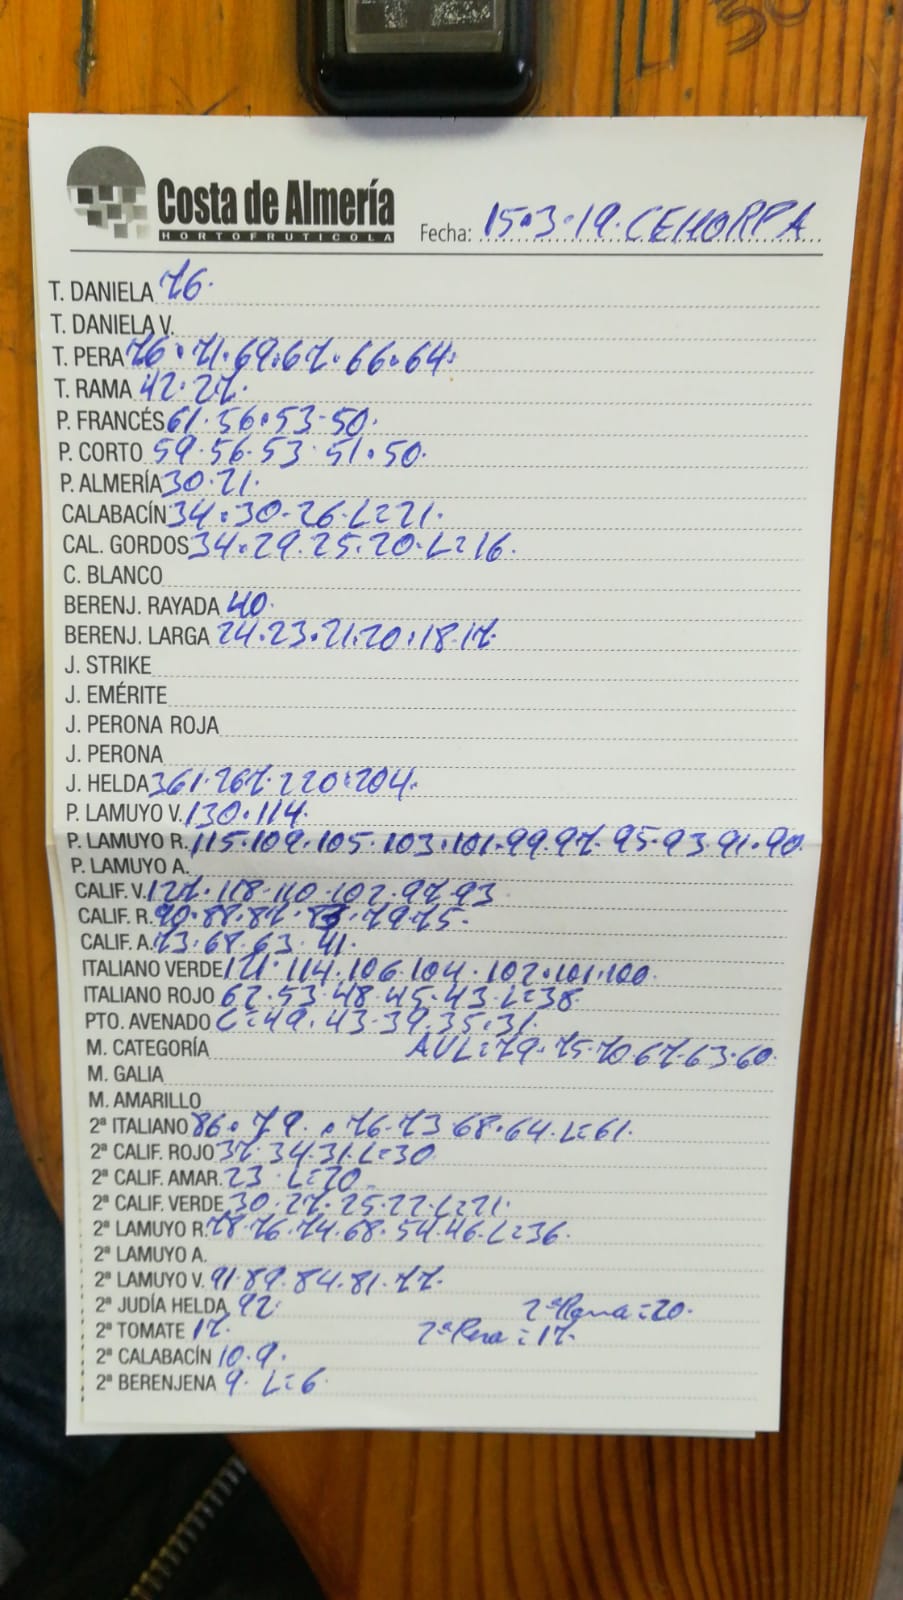 Costa de Almería
HORTOFRUTICOLA
Fecha: 15.3.19. CEHORPA
T. DANIELA 76.
T. DANIELA V.
T. PERA 76.71.69.67.66.64.
T. RAMA 42.27.
P. FRANCÉS 61.56.53-50.
P. CORTO 59.56.53.51.50.
P. ALMERÍA 30.21.
CALABACÍN 34.30-26.L=21.
CAL. GORDOS 34.29.25.20.L=16.
C. BLANCO
BERENJ. RAYADA 40.
BERENJ. LARGA 24.23.21.20.18.17.
J. STRIKE
J. EMÉRITE
J. PERONA ROJA
J. PERONA
J. HELDA 361.267.220.204.
P. LAMUYO V. 130.114.
P. LAMUYO R. 115.109.105.103.101.99.97.95.93.91.90.
P. LAMUYO A.
CALIF. V. 127.118.110.102.97.93
CALIF. R. 90.88.87.83.79.75.
CALIF. A. 73.68.63.41.
ITALIANO VERDE 121.114.106.104.102.101.100.
ITALIANO ROJO 62.53.48.45.43.L=38.
PTO. AVENADO C=49.43.39.35.31.
M. CATEGORÍA AVL=79.75.70.67.63.60.
M. GALIA
M. AMARILLO
2ª ITALIANO 86.79.76.73.68.64.L=61.
2ª CALIF. ROJO 37.34.31.L=30
2ª CALIF. AMAR. 23 L=20
2ª CALIF. VERDE 30.27.25.22.L=21.
2ª LAMUYO R. 78.76.74.68.54.46.L=36.
2ª LAMUYO A.
2ª LAMUYO V. 91.89.84.81.77.
2ª JUDÍA HELDA 92. 2ª Rama=20.
2ª TOMATE 17. 2ª Pera=17.
2ª CALABACÍN 10.9.
2ª BERENJENA 9. L=6.